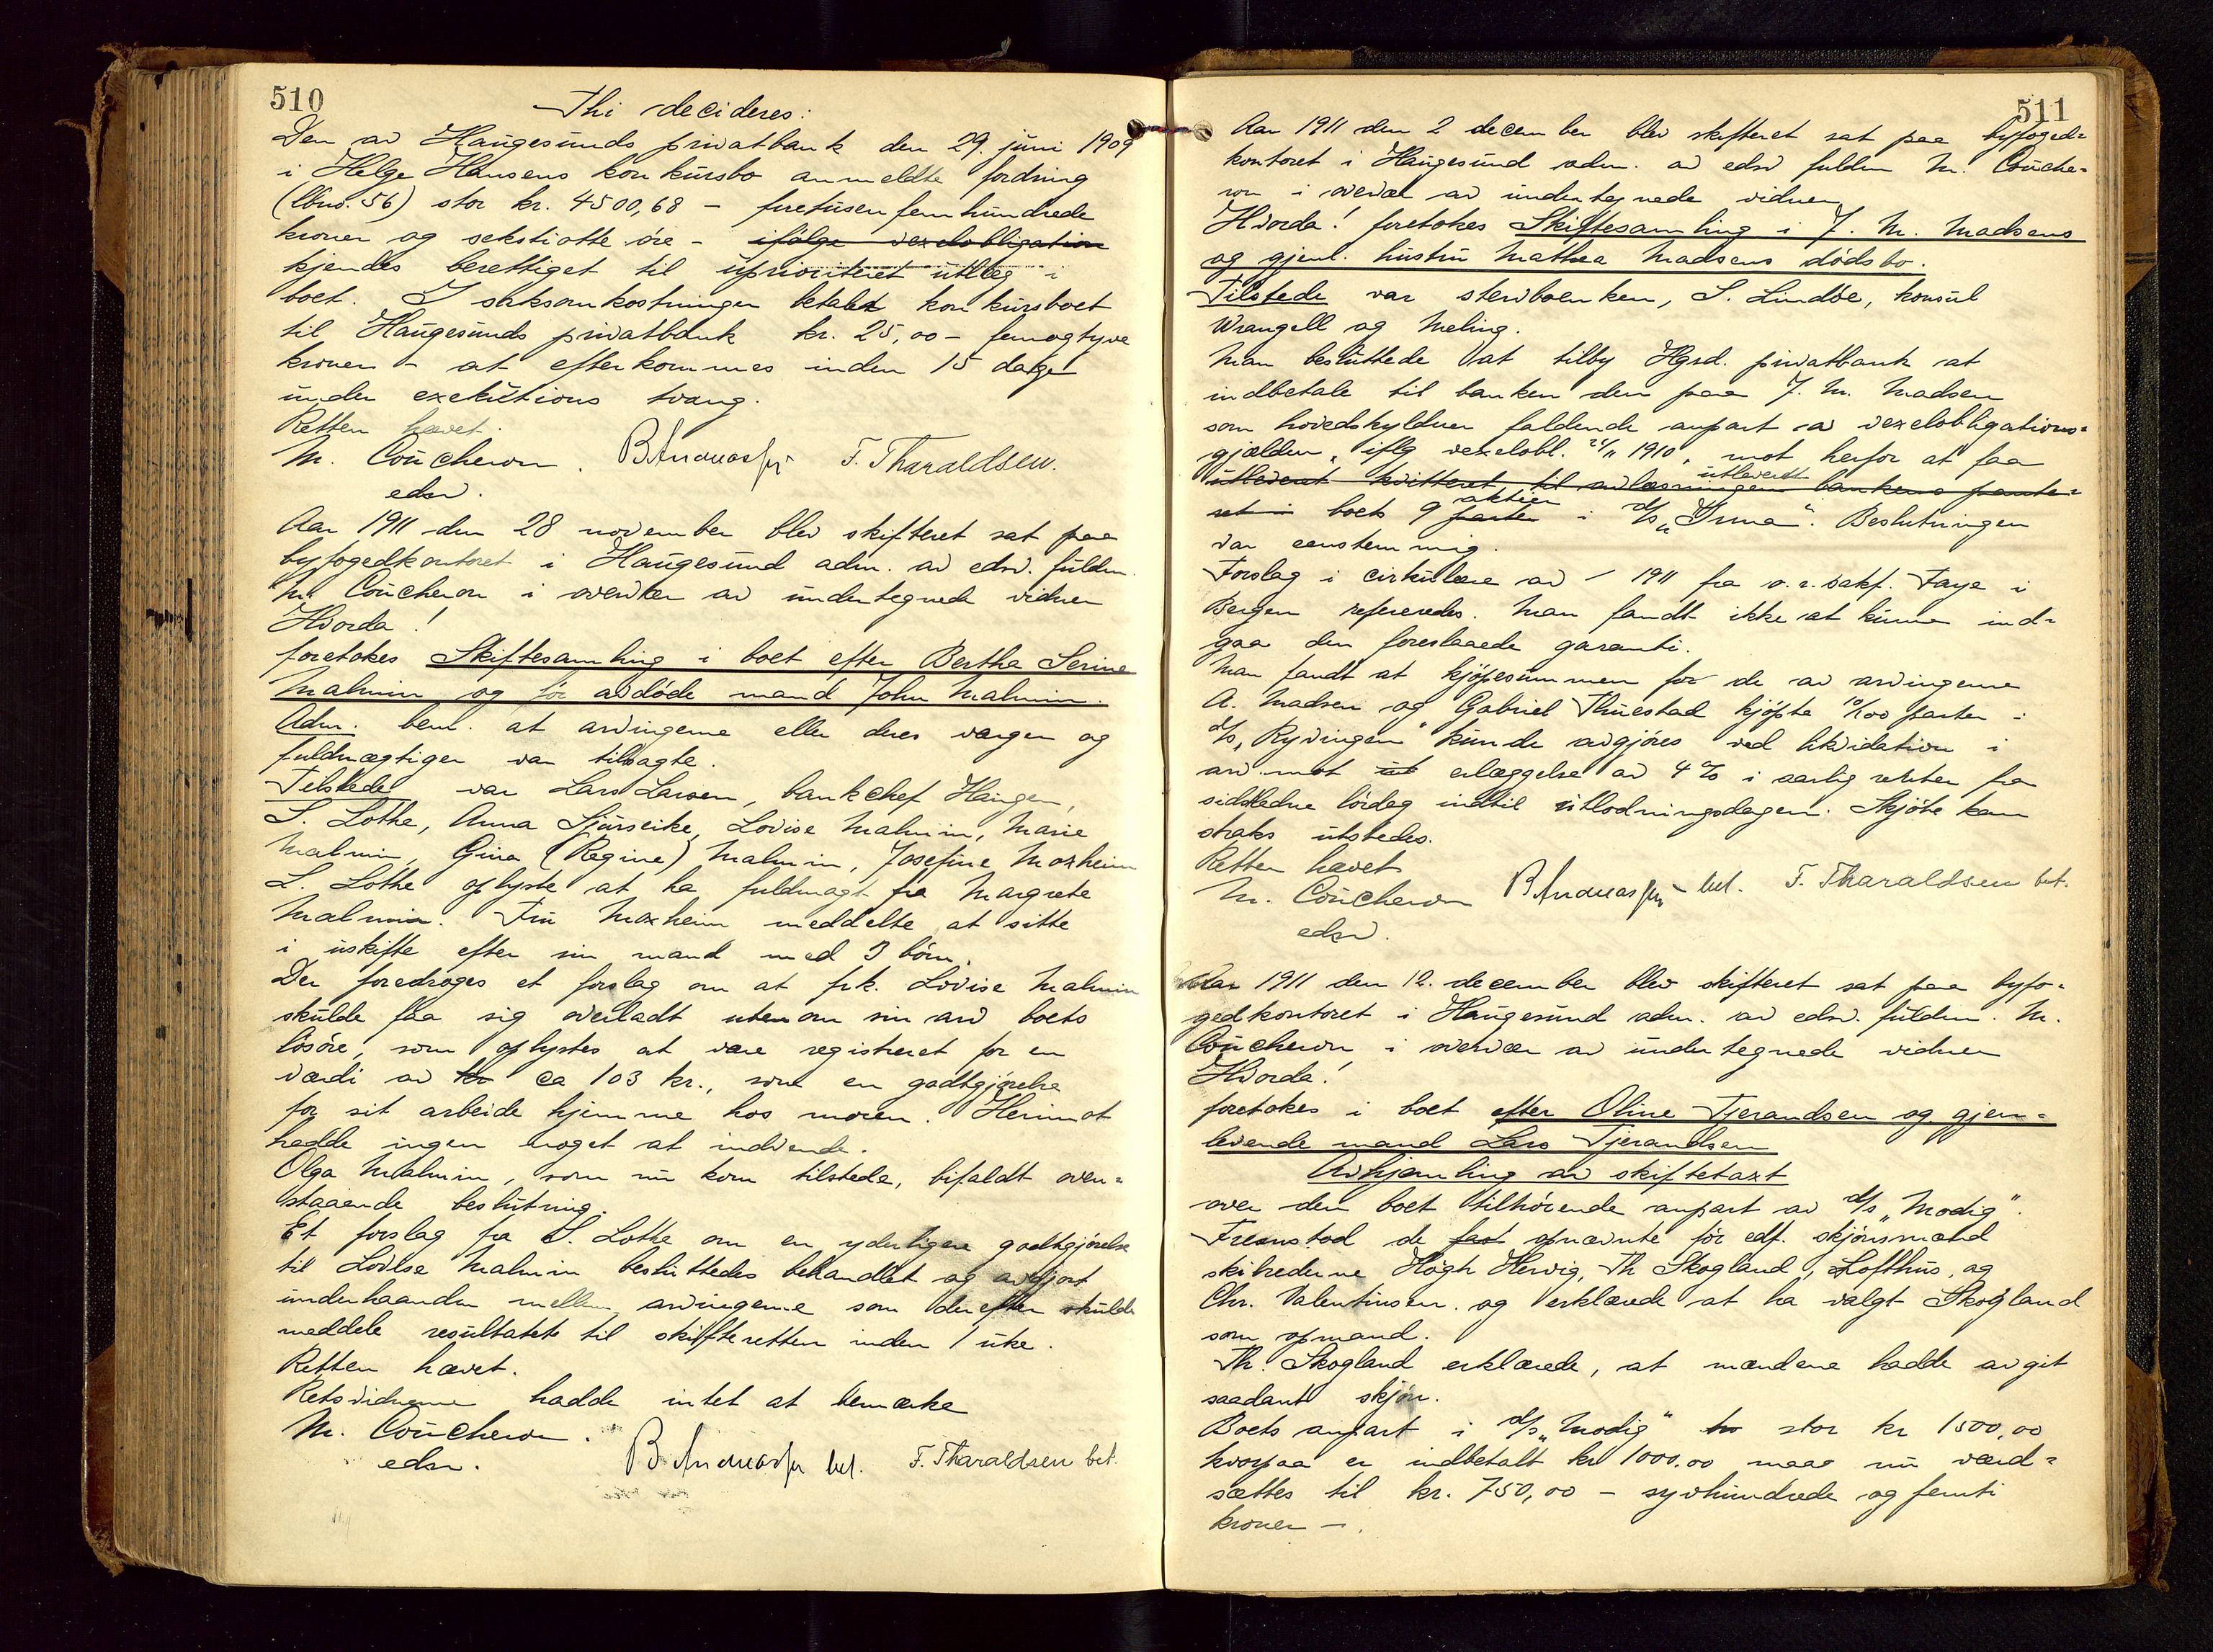 510
Thi decideres:
Den av Haugesunds privatbank den 29. juni 1909
i Helge Hansens konkursbo anmeldte fordring
(lbno. 56) stor kr. 4500,68 - firetusen fem hundrede
kroner og sekstiotte øre - ifølge vexelobligation
kjendes berettiget til uprioriteret utlæg i
boet. I saksomkostninger betaler konkursboet
til Haugesunds privatbank kr. 25,00 - femogtyve
kroner - at efterkommes inden 15 dage
under exekutions tvang.
Retten hævet.
M. Coucheron. B. Andreassen F. Tharaldsen.
edsv.
Aar 1911 den 28 november blev skifteret sat paa
byfogedkontoret i Haugesund adm. av edsv. fuldm.
M. Coucheron i overvær av undertegnede vidner
Hvorda!
foretokes Skiftesamling i boet efter Bertha Serine
Malmin og før avdøde mand John Malmin.
Adm. bem. at arvingerne eller deres værger og
fuldmægtiger var tilsagte.
Tilstede var Lars Larsen, bankchef Haugen,
S. Lothe, Anna Sjurseike, Lovise Malmin, Marie
Malmin, Gina (Regine) Malmin, Josefine Moxheim
L. Lothe oplyste at ha fuldmagt fra Margrete
Malmin. Fru Moxheim meddelte at sitte
i uskifte efter sin mand med 3 børn.
Der foredroges et forslag om at frk. Lovise Malmin
skulde faa sig overladt utenom sin arv boets
løsøre, som oplystes at være registreret for en
værdi av kr ca 103 kr., som en godtgjørelse
for sit arbeide hjemme hos moren. Herimot
hadde ingen noget at indvende.
Olga Malmin, som nu kom tilstede, bifaldt oven-
staaende beslutning.
Et forslag fra S. Lothe om en yderligere godtgjørelse
til Lovise Malmin besluttedes behandlet og avgjort
underhaanden mellem arvingerne som derefter skulde
meddele resultatet til skifteretten inden 1 uke.
Retten hævet.
Retsvidnerne hadde intet at bemærke
M. Coucheron.
edsv. B. Andreassen bet. F. Tharaldsen bet.
511
Aar 1911 den 2 december blev skifteret sat paa byfoged-
kontoret i Haugesund adm. av edsv fuldm M. Couche-
ron i overvær av undertegnede vidner
Hvorda! foretokes Skiftesamling i J. M. Madsens
og gjenl. hustru Mathea Madsens dødsbo.
Tilstede var sterboenken, S. Lindøe, konsul
Wrangell og Meling.
Man besluttede at tilby Hgsd. privatbank at
indbetale til banken den paa J. M. Madsen
som hovedskyldner faldende anpart av vexelobligations-
gjælden, iflg vexelobl. 1910, mot herfor at faa
utleveret kvitteret til avlæsningen utleveret bankens pante-
ret i boets 9 parter aktier i d/s „Irma". Beslutningen
var eenstemmig.
Forslag i cirkulære av / 1911 fra o.r.sakf. Faye i
Bergen refereredes. Man fandt ikke at kunne ind-
gaa den foreslaaede garanti.
Man fandt at kjøpesummen for de av arvingerne
A. Madsen og Gabriel Thuestad kjøpte 10/100 parter i
d/s „Ryvingen" kunde avgjøres ved likvidation i
arv mot ut erlæggelse av 4 % i aarlig renter fra
sidstledne lørdag indtil utlodningsdagen. Skjøte kan
straks utstedes.
Retten hævet
M. Coucheron B. Andreassen bet. F. Tharaldsen bet.
edsv.
Aar 1911 den 12. december blev skifteret sat paa byfo-
gedkontoret i Haugesund adm. av edsv. fuldm. M.
Coucheron i overvær av undertegnede vidner
Hvorda!
foretokes i boet efter Oline Tjerandsen og gjen-
levende mand Lars Tjerandsen
Avhjemling av skiftetaxt
over den boet tilhørende anpart av d/s „Modig".
Fremstod de fast opnævnte før edf. skjønsmænd
skibrederne Høgh Hervig, Th Skogland, Lofthus, og
Chr. Valentinsen. og erklærede at ha valgt Skogland
som opmand.
Th. Skogland erklærede, at mændene hadde avgit
saadant skjøn.
Boets anpart i d/s „Modig" stor kr 1500,00
hvorpaa er indbetalt kr 1000,00 maa nu værd-
sættes til kr. 750,00 - syvhundrede og femti
kroner -.